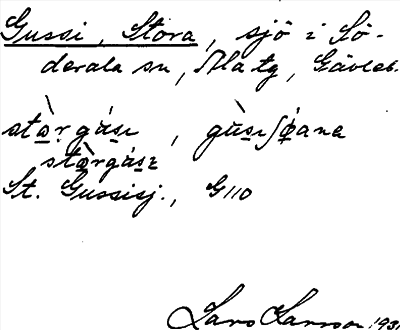 Gussi, Stora, sjö i Sö-
derala sn, Ala tg, Gävleb.
stò̱ṛgásɪ, gùsɪʃø̀ana
stò̱rgásɪ
St. Gussisj., G110
Lars Larsson 193